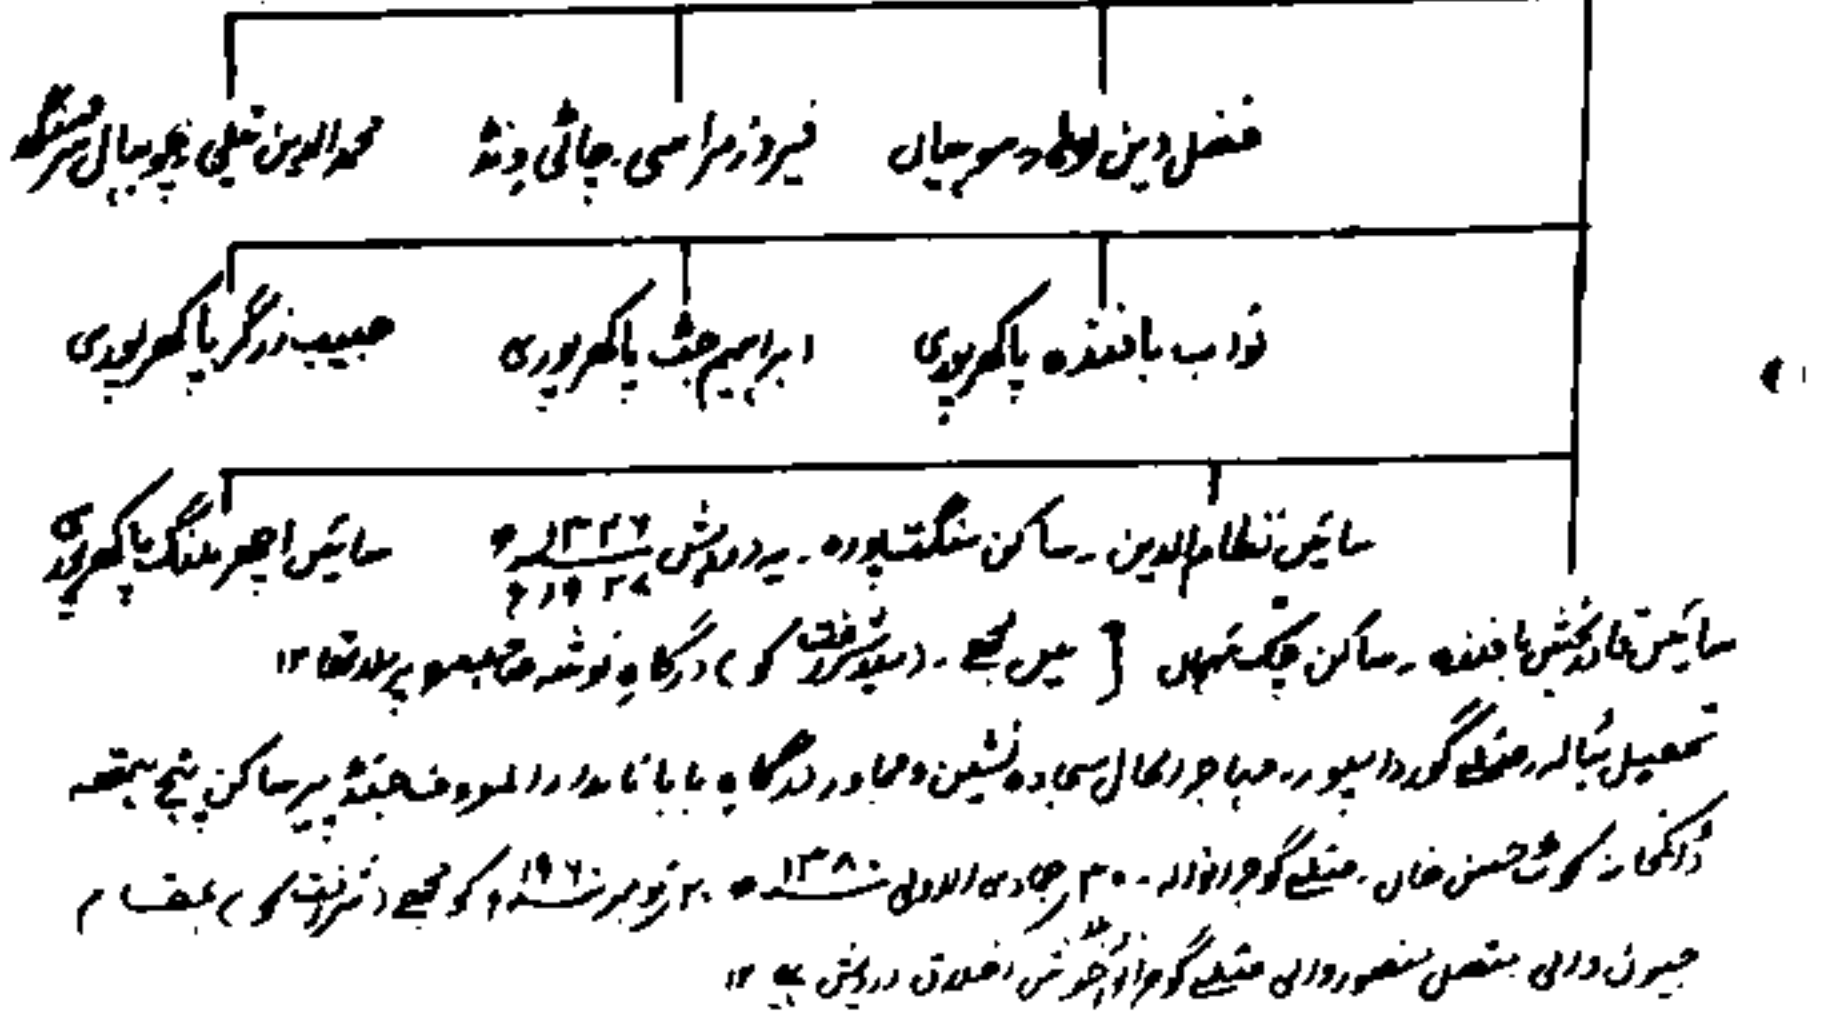 فضل دین لوہار سوہیاں فیروز مراسی۔ چاٹی ونڈ محمد الدین تیلی
نواب بافندہ پاکھرپوری ابراہیم جٹ پاکھرپوری حبیب زرگر پاکھرپوری
سائیں نظام الدین۔ ساکن سنگتپورہ۔ یہ درویش ۱۳۴۶ھ ۱۹۲۸ء سائیں اچھر ملنگ پاکھرپوری
سائیں قادر بخش بافندہ۔ ساکن چک [ میں مجھے۔ (سید شرافت کو) درگاہِ نوشہ صاحب پر ملا تھا ۱۲
تحصیل بٹالہ ضلع گورداسپور۔ مہاجر الحال سجادہ نشین و مجاور درگاہِ بابا نامدار المعروف جھنڈ پیر ساکن پنج ہتھہ
ڈاکخانہ کوٹ حسن خاں۔ ضلع گوجرانوالہ۔ ۳۰ جمادی الاولیٰ ۱۳۸۰ھ ۲۰ نومبر ۱۹۶۰ء کو مجھے (شرافت کو) بمقام
جیون والی متصل منصور والی ضلع گوجرانوالہ ملا۔ خوش اخلاق درویش ہے ۱۲